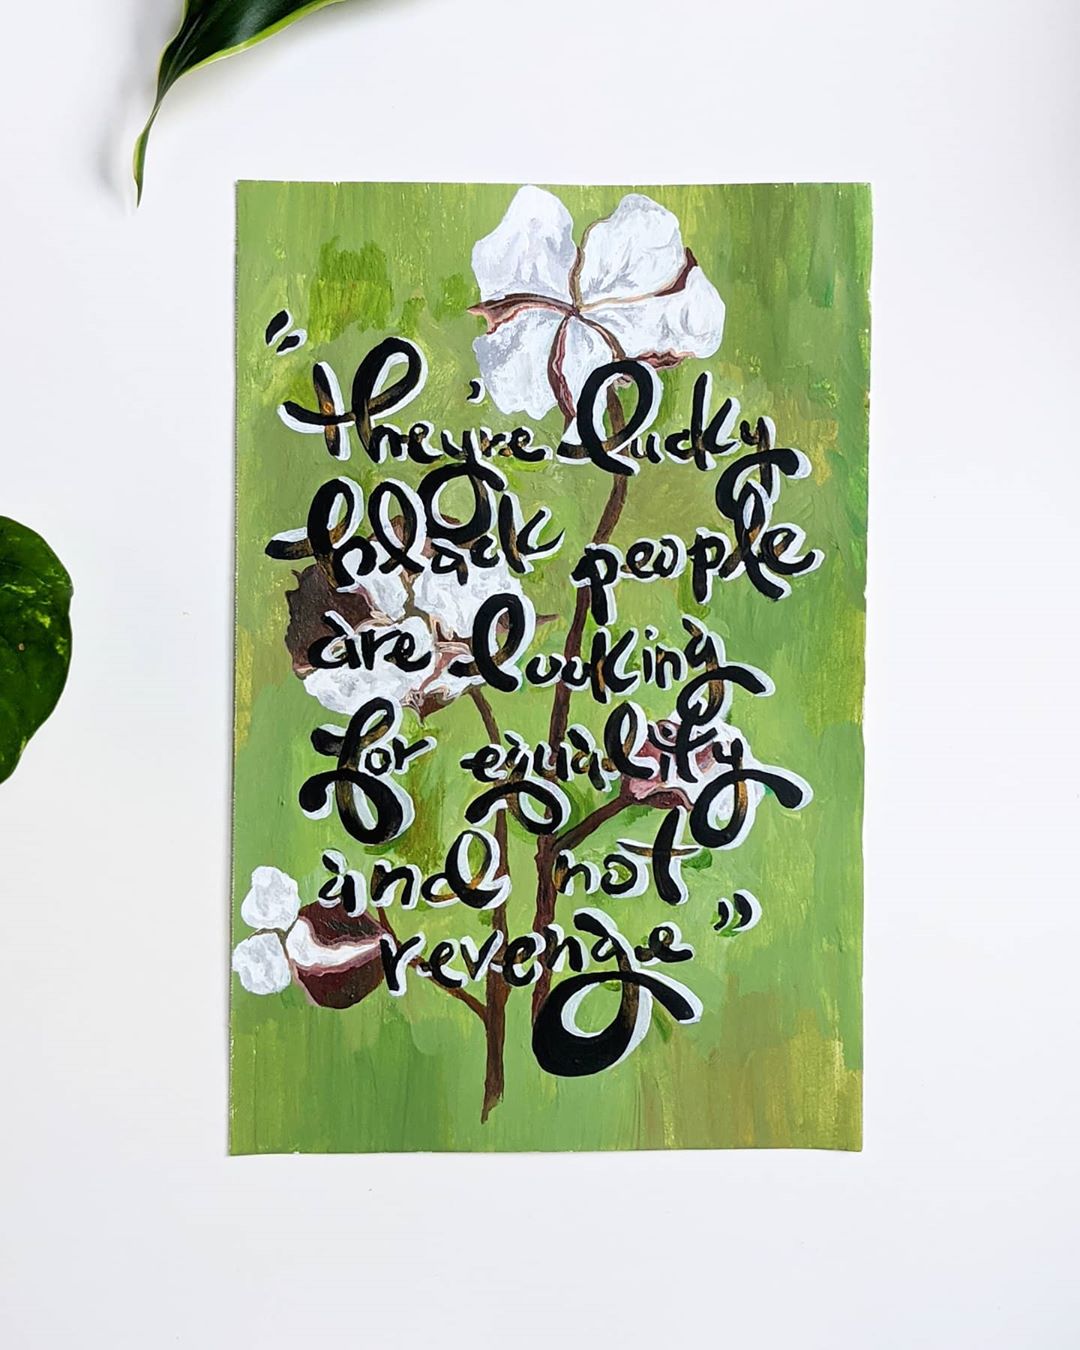 "they're lucky
black people
are looking
for equality
and not
revenge"